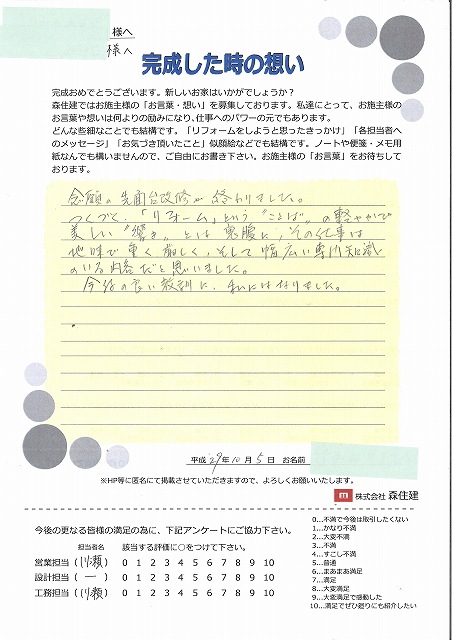 様へ
様へ
完成した時の想い
完成おめでとうございます。新しいお家はいかがでしょうか？
森住建ではお施主様の「お言葉・想い」を募集しております。私達にとって、お施主様の
お言葉や想いは何よりの励みになり、仕事へのパワーの元でもあります。
どんな些細なことでも結構です。「リフォームをしようと思ったきっかけ」「各担当者へ
のメッセージ」「お気づき頂いたこと」似顔絵などでも結構です。ノートや便箋・メモ用
紙なんでも構いませんので、ご自由にお書き下さい。お施主様の「お言葉」をお待ちして
おります。
念願の洗面台改修が終わりました。
つくづく、「リフォーム」という"ことば"の軽やかで
美しい"響き"とは裏腹に、その仕事は
地味で重く厳しく、そして幅広い専門知識
のいる内容だと思いました。
今後の良い教訓に、私にはなりました。
平成 29年 10月 5日 お名前
※HP等に匿名にて掲載させていただきますので、よろしくお願いいたします。
m 株式会社 森住建
今後の更なる皆様の満足の為に、下記アンケートにご協力下さい。
担当者名 該当する評価に○をつけて下さい。
営業担当（川瀬） 0 1 2 3 4 5 6 7 8 9 10
設計担当（ー） 0 1 2 3 4 5 6 7 8 9 10
工務担当（川瀬） 0 1 2 3 4 5 6 7 8 9 10
0…不満で今後は取引したくない
1…かなり不満
2…大変不満
3…不満
4…すこし不満
5…普通
6…まあまあ満足
7…満足
8…大変満足
9…大変満足で感動した
10…満足でぜひ廻りにも紹介したい